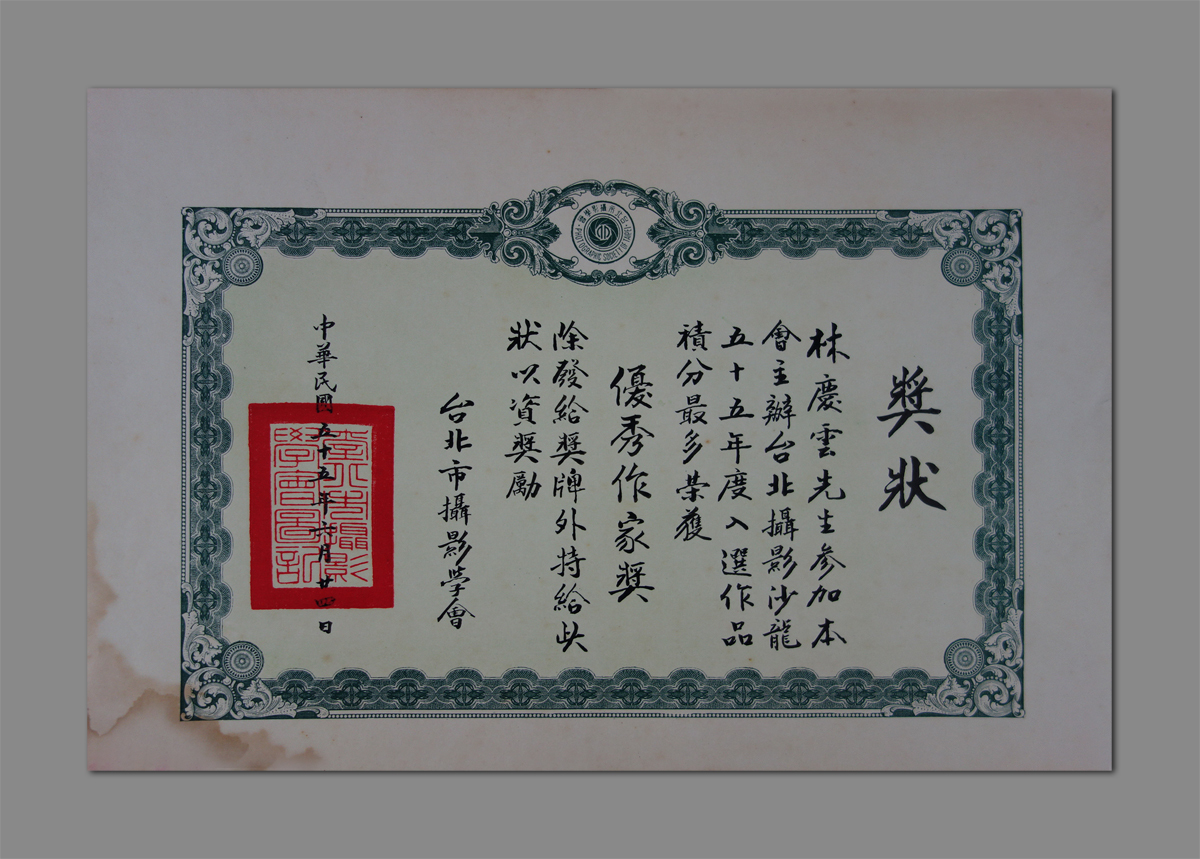 獎狀
林慶雲先生參加本
會主辦台北攝影沙龍
五十五年度入選作品
積分最多榮獲
優秀作家獎
除發給獎牌外持給此
狀以資獎勵
台北市攝影學會
中華民國五十五年六月廿四日
臺北市攝影
學會圖記
PHOTOGRAPHIC SOCIETY OF TAIPEI